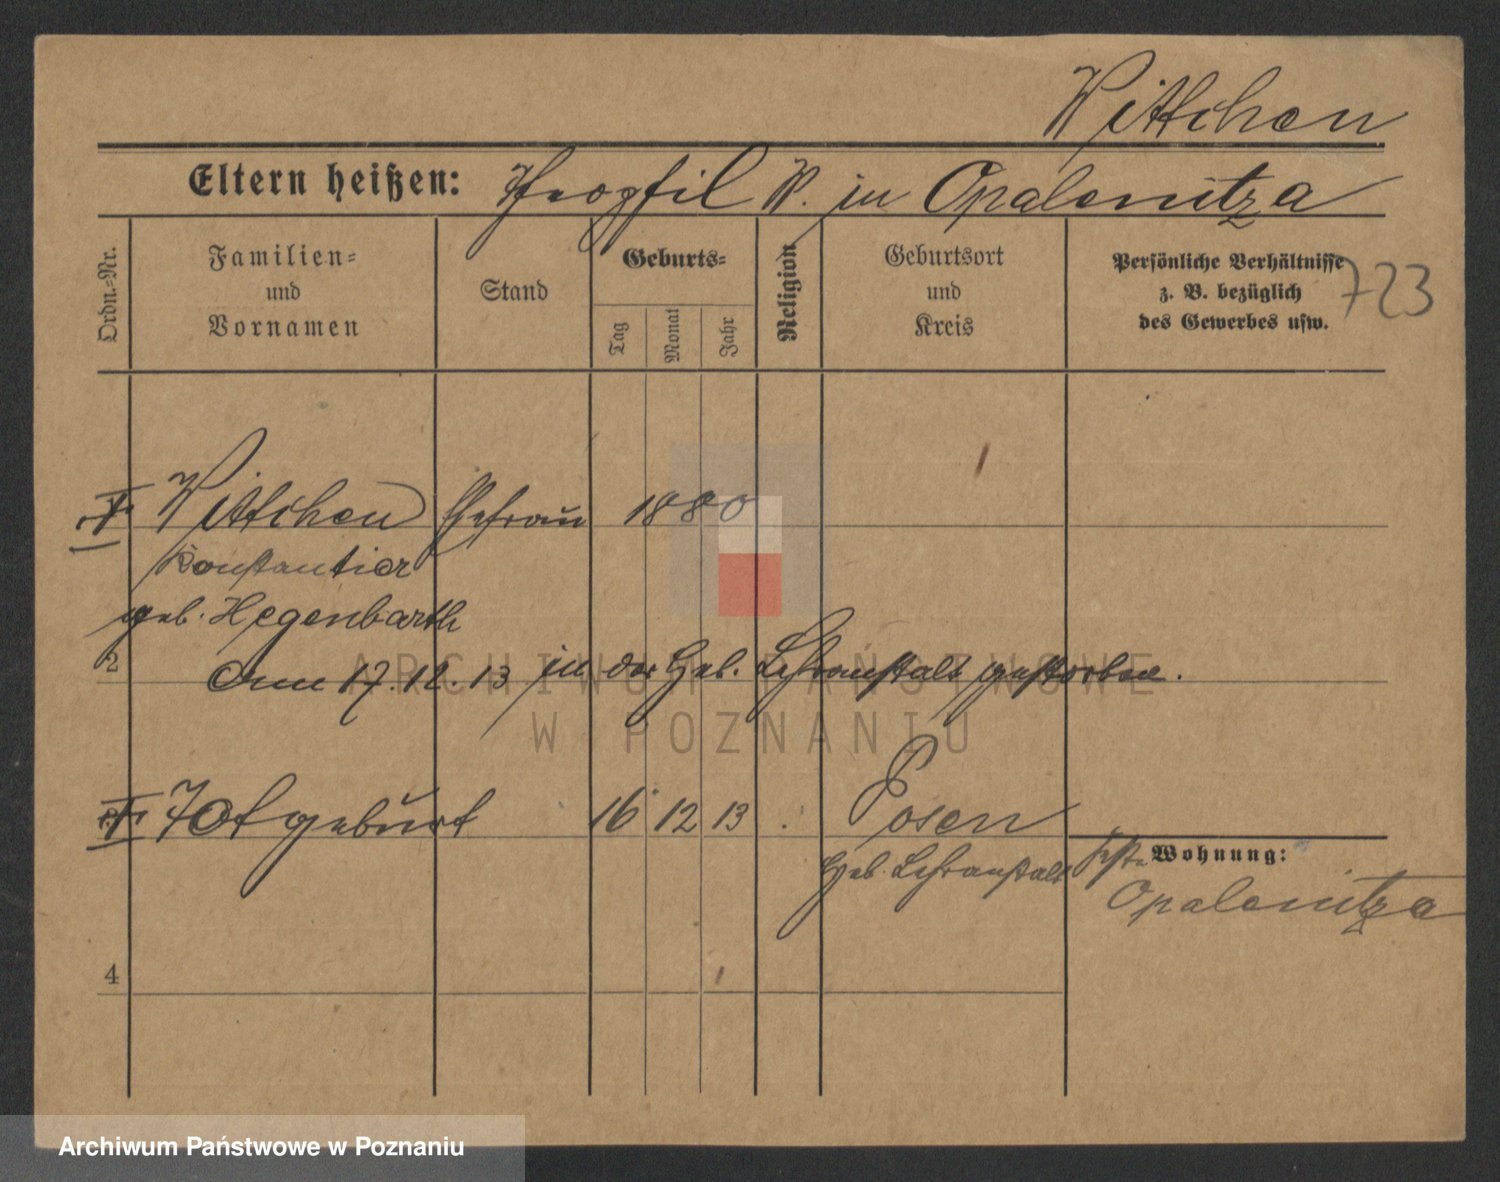 Wittchen
Eltern heißen: Theophil W. in Opalenitza
Ordn.-Nr.
Familien-
und
Vornamen
Stand
Geburts-
Tag
Monat
Jahr
Religion
Geburtsort
und
Kreis
Persönliche Verhältnisse
z. B. bezüglich
des Gewerbes usw.
723
Wittchen Ehefrau 1880
geb. Hegenbarth
2
Am 17.12.13 in der Heb. Lehranstalt gestorben.
ARCHIWUM PAŃSTWOWE
W POZNANIU
Totgeburt 16 12 13 . Posen
Heb. Lehranstalt
Wohnung:
Opalenitza
4
Archiwum Państwowe w Poznaniu